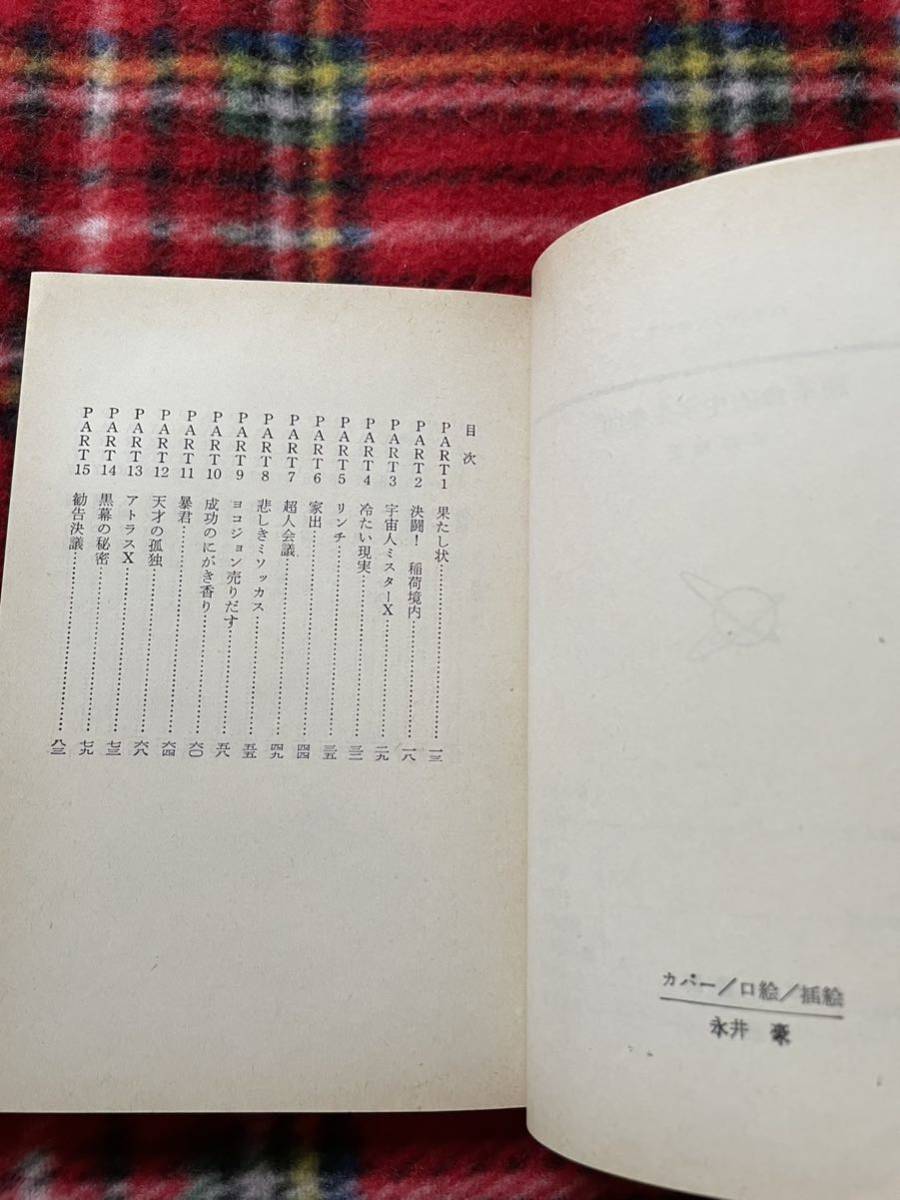 カバー／口絵／插絵
永井 豪
目次
PART1 果たし状……………………一三
PART2 決闘！ 稲荷境内……………………一八
PART3 宇宙人ミスターX……………………二九
PART4 冷たい現実……………………三二
PART5 リンチ……………………三五
PART6 家出……………………四四
PART7 超人会議……………………四九
PART8 悲しきミソッカス……………………五五
PART9 ヨコジョン売りだす……………………五八
PART10 成功のにがき香り……………………六〇
PART11 暴君……………………六四
PART12 天才の孤独……………………六八
PART13 アトラスX……………………七三
PART14 黒幕の秘密……………………七九
PART15 勧告決議……………………八三